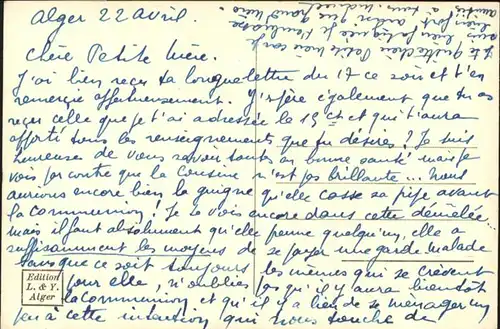 Alger 22 avril.
Chère Petite Mère.
J'ai bien reçu ta longue lettre du 17 ce soir et t'en
remercie affectueusement. J'espère également que tu as
reçu celle que je t'ai adressée le 19 ct et qui t'aura
apporté tous les renseignements que tu désires? Je suis
heureuse de vous savoir toutes en bonne santé mais je
vois par contre que la Cousine n'est pas brillante... Nous
aurions encore bien la guigne qu'elle casse sa pipe avant
la communion! Je te vois encore dans cette démêlée
mais il faut absolument qu'elle prenne quelqu'un, elle a
suffisamment les moyens de se payer une garde malade
sans que ce soit toujours les mêmes qui se crèvent
pour elle, n'oublies pas qu'il y aura bientôt
la communion et qu'il y a lieu de se ménager un
peu à cette intention qui nous touche de
Edition
L. & Y.
Alger
Je te Petite Mère
bien fort